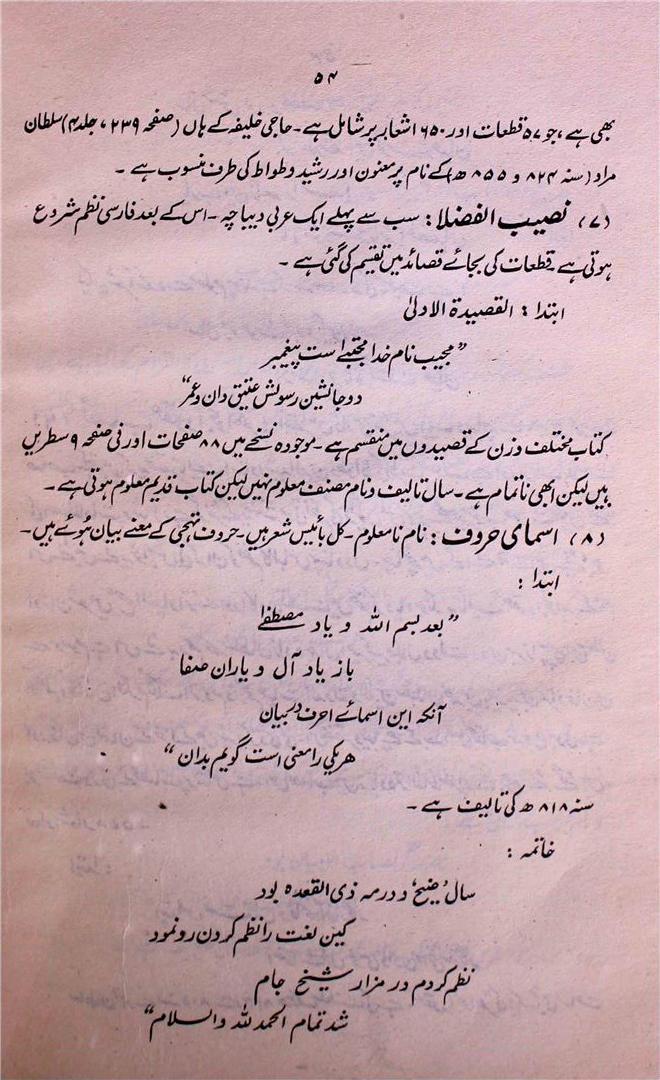 ۵۴
بھی ہے، جو ۵۷ قطعات اور ۶۵۰ اشعار پر شامل ہے۔ حاجی خلیفہ کے ہاں (صفحہ ۲۳۹، جلد ۴) سلطان
مراد (سنہ ۸۲۴ و ۸۵۵ ھ) کے نام پر معنون اور رشید وطواط کی طرف منسوب ہے۔
(۷) نصیب الفضلا: سب سے پہلے ایک عربی دیباچہ۔ اس کے بعد فارسی نظم شروع
ہوتی ہے۔ قطعات کی بجائے قصائد میں تقسیم کی گئی ہے۔
ابتدا: القصیدۃ الاولیٰ
”مجیب نام خدا مجتبےٰ است پیغمبر
دو جانشین رسولش عتیق دان و عمر“
کتاب مختلف وزن کے قصیدوں میں منقسم ہے۔ موجودہ نسخے میں ۸۸ صفحات اور فی صفحہ ۹ سطریں
ہیں لیکن ابھی ناتمام ہے۔ سال تالیف و نام مصنف معلوم نہیں لیکن کتاب قدیم معلوم ہوتی ہے۔
(۸) اسمای حروف: نام نامعلوم۔ کل بائیس شعر ہیں۔ حروف تہجی کے معنے بیان ہوئے ہیں۔
ابتدا:
”بعد بسم اللہ و یاد مصطفےٰ
باز یاد آل و یاران صفا
آنکہ این اسمائے احرف در بیان
ہریکی را معنی است گویم بدان“
سنہ ۸۱۸ ھ کی تالیف ہے۔
خاتمہ:
سال ’ضیح‘ و در مہ ذی القعدہ بود
کین لغت را نظم کردن رو نمود
نظم کردم در مزار شیخ جام
شد تمام الحمد للہ والسلام“